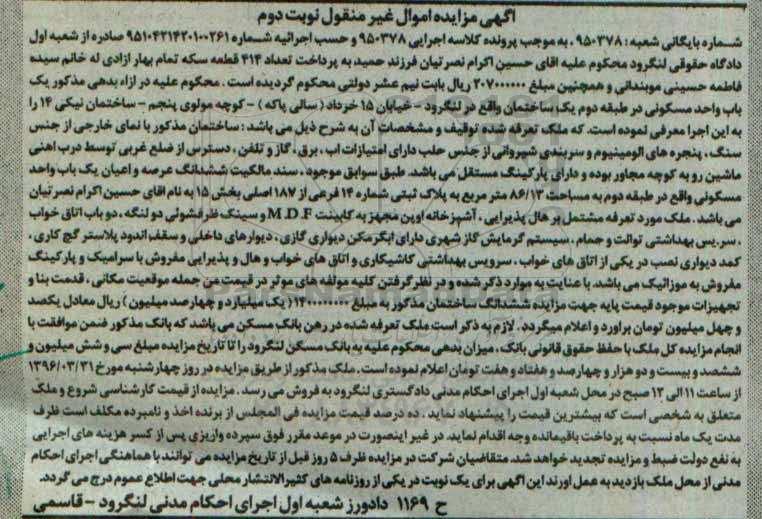 آگهی مزایده اموال غیر منقول نوبت دوم
شماره بایگانی شعبه : ۹۵۰۳۷۸ . به موجب پرونده کلاسه اجرایی ۹۵۰۳۷۸ و حسب اجرائیه شماره ۹۵۱۰۴۲۱۴۲۰۱۰۰۲۶۱ صادره از شعبه اول
دادگاه حقوقی لنگرود محکوم علیه اقای حسین اکرام نصرتیان فرزند حمید به پرداخت تعداد ۴۱۴ قطعه سکه تمام بهار ازادی له خانم سیده
فاطمه حسینی موبندانی و همچنین مبلغ ۲۰۷۰۰۰۰۰۰ ریال بابت نیم عشر دولتی محکوم گردیده است . محکوم علیه در ازاء بدهی مذکور یک
باب واحد مسکونی در طبقه دوم یک ساختمان واقع در لنگرود - خیابان ۱۵ خرداد ( سالی پاکه ) - کوچه مولوی پنجم - ساختمان نیکی ۱۴ را
به این اجرا معرفی نموده است. که ملک تعرفه شده توقیف و مشخصات آن به شرح ذیل می باشد : ساختمان مذکور با نمای خارجی از جنس
سنگ ، پنجره های الومینیوم و سربندی شیروانی از جنس حلب دارای امتیازات اب ، برق ، گاز و تلفن ، دسترس از ضلع غربی توسط درب اهنی
ماشین رو به کوچه مجاور بوده و دارای پارکینگ مستقل می باشد. طبق سوابق موجود ، سند مالکیت ششدانگ عرصه و اعیان یک باب واحد
مسکونی واقع در طبقه دوم به مساحت ۸۶/۱۳ متر مربع به پلاک ثبتی شماره ۱۴ فرعی از ۱۸۷ اصلی بخش ۱۵ به نام اقای حسین اکرام نصرتیان
می باشد . ملک مورد تعرفه مشتمل بر هال پذیرایی ، آشپزخانه اوپن مجهز به کابینت M.D.F و سینک ظرفشوئی دو لنگه ، دو باب اتاق خواب
، سرویس بهداشتی توالت و حمام . سیستم گرمایش گاز شهری دارای ابگرمکن دیواری گازی ، دیوارهای داخلی و سقف اندود پلاستر گچ کاری ،
کمد دیواری نصب در یکی از اتاق های خواب ، سرویس بهداشتی کاشیکاری و اتاق های خواب و هال و پذیرایی مفروش با سرامیک و پارکینگ
مفروش به موزائیک می باشد. با عنایت به موارد ذکر شده و در نظر گرفتن کلیه مولفه های موثر در قیمت من جمله موقعیت مکانی ، قدمت بنا و
تجهیزات موجود قیمت پایه جهت مزایده ششدانگ ساختمان مذکور به مبلغ ۱۴۰۰۰۰۰۰۰۰ ( یک میلیارد و چهارصد میلیون ) ریال معادل یکصد
و چهل میلیون تومان براورد و اعلام میگردد . لازم به ذکر است ملک تعرفه شده در رهن بانک مسکن می باشد که بانک مذکور ضمن موافقت با
انجام مزایده کل ملک با حفظ حقوق قانونی بانک ، میزان بدهی محکوم علیه به بانک مسکن لنگرود را تا تاریخ مزایده مبلغ سی و شش میلیون و
ششصد و بیست و دو هزار و چهارصد و هفتاد و هفت تومان اعلام نموده است. ملک مذکور از طریق مزایده در روز چهارشنبه مورخ ۱۳۹۶/۰۳/۳۱
از ساعت ۱۱ الی ۱۲ صبح در محل شعبه اول اجرای احکام مدنی دادگستری لنگرود به فروش می رسد . مزایده از قیمت کارشناسی شروع و ملک
متعلق به شخصی است که بیشترین قیمت را پیشنهاد نماید . ده درصد قیمت مزایده فی المجلس از برنده اخذ و نامبرده مکلف است ظرف
مدت یک ماه نسبت به پرداخت باقیمانده وجه اقدام نماید. در غیر اینصورت در موعد مقرر فوق سپرده واریزی پس از کسر هزینه های اجرایی
به نفع دولت ضبط و مزایده تجدید خواهد شد. متقاضیان شرکت در مزایده ظرف ۵ روز قبل از تاریخ مزایده می توانند با هماهنگی اجرای احکام
مدنی از محل ملک بازدید به عمل اورند این اگهی برای یک نوبت در یکی از روزنامه های کثیرالانتشار محلی جهت اطلاع عموم درج می گردد.
ح ۱۱۶۹ دادورز شعبه اول اجرای احکام مدنی لنگرود - قاسمی